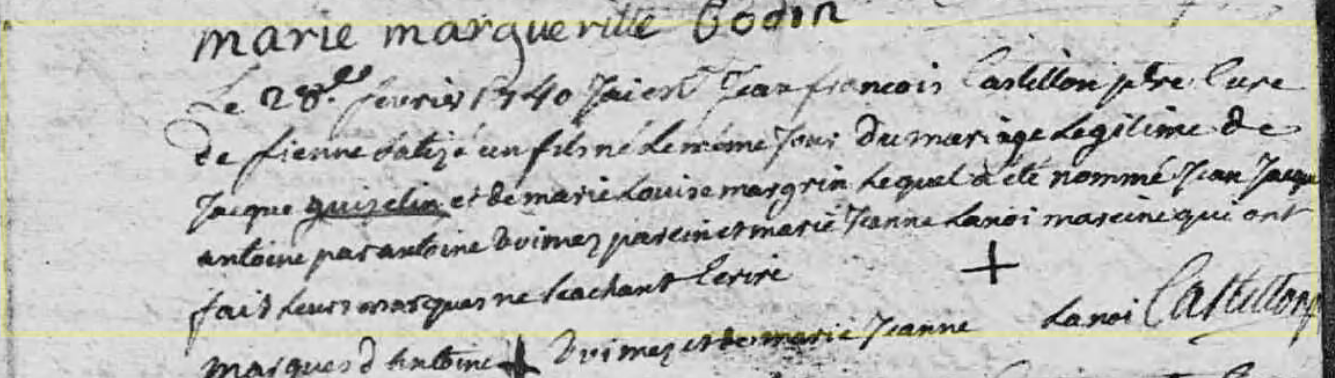 marie margueritte Godin
Le 28.e fevrier 1740 Jai Jean francois Castillon ptre Cure
de fienne batizé un fils né le méme Jour du mariage Legitime de
Jacque guiselin et de marie Louise margrin Lequel a été nommé Jean Jacque
antoine par antoine parein et marie Jeanne Lanoi mareine qui ont
fait Leurs marques ne scachant Ecrire
+
marques d antoine + et de marie Jeanne Lanoi Castillon